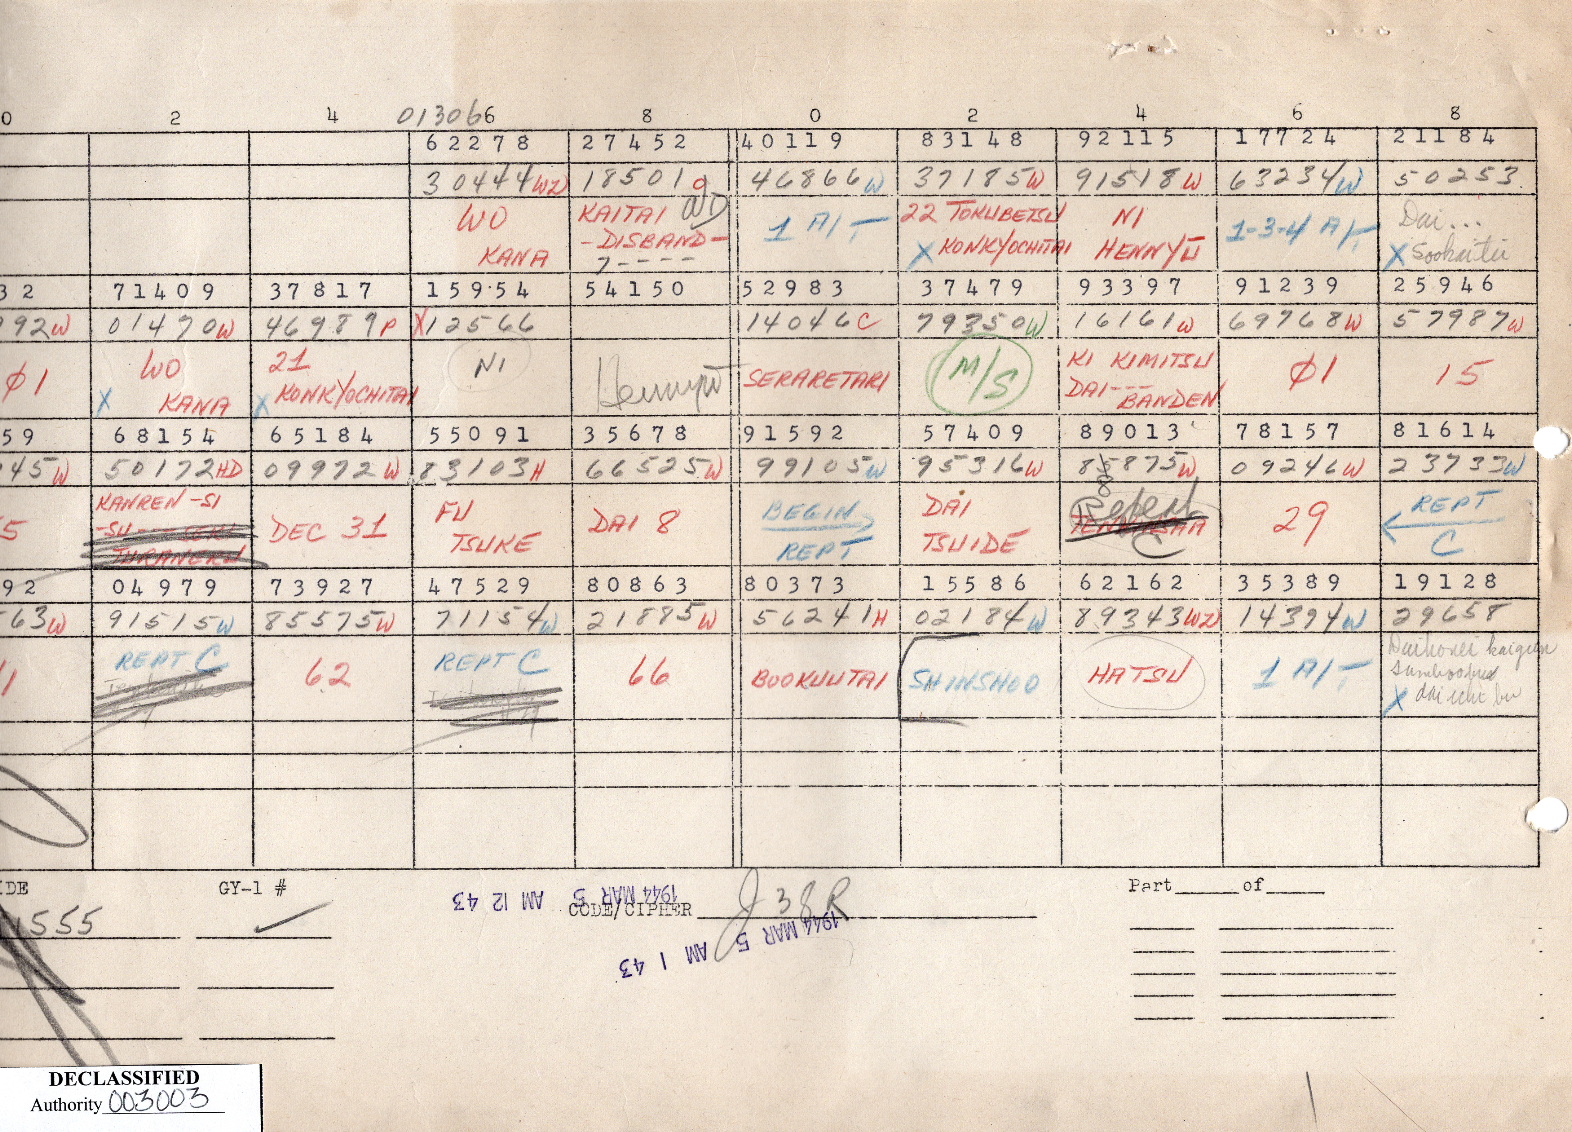 0 2 4 013066 8 0 2 4 6 8
62278 27452 40119 83148 92115 17724 21184
30444WZ 18501 46866W 37185W 91518W 63234W 50253
WO KANA
KAITAI -DISBAND-
1 A/T
22 TOKUBETSU X KONKYOCHITAI
NI HENNYU
1-3-4 A/T
Dai... X Sookaitii
32 71409 37817 15954 54150 52983 37479 93397 91239 25946
92W 01470W 46989P X12566 14046C 79350W 16161W 69768W 57987W
Ø1
WO X KANA
21 X KONKYOCHITAI
NI
Hennyu
SERARETARI
M/S
KI KIMITSU DAI--- BANDEN
Ø1
15
59 68154 65184 55091 35678 91592 57409 89013 78157 81614
45W 50172HD 09972W 83103H 66525W 99105W 95316W 85875W 09246W 23733W
5
KANREN-SI
-SU
DEC 31
FU TSUKE
DAI 8
BEGIN REPT
DAI TSUIDE
Repeat C
29
REPT C
92 04979 73927 47529 80863 80373 15586 62162 35389 19128
63W 91515W 85575W 71154W 21885W 56241H 02184W 89343WZ 14394W 29658
1
REPT C
62
REPT C
66
BOOKUUTAI
SHINSHOO
HATSU
1 A/T
Daihonei kaigun
X dai ichi bu
IDE GY-1 # 1944 MAR 5 AM 12 43 CODE/CIPHER J38R Part of
1555
1944 MAR 5 AM 1 43
DECLASSIFIED
Authority 003003